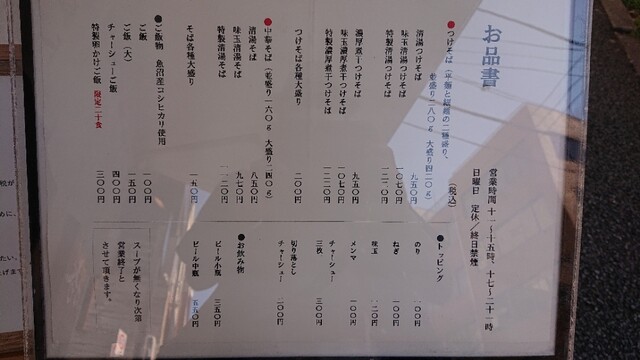 お品書
営業時間 十一〜十五時、十七〜二十一時
日曜日 定休/終日禁煙
●つけそば（平麺と細麺の二種盛り、
並盛り二八〇g 大盛り四二〇g）
（税込）
清湯つけそば 九五〇円
味玉清湯つけそば 一〇七〇円
特製清湯つけそば
濃厚煮干つけそば 九五〇円
味玉濃厚煮干つけそば 一〇七〇円
特製濃厚煮干つけそば 一二二〇円
つけそば各種大盛り 二〇〇円
●中華そば（並盛り一六〇g 大盛り二四〇g）
清湯そば 八五〇円
味玉清湯そば 九七〇円
特製清湯そば 一一二〇円
そば各種大盛り 一五〇円
●ご飯物 魚沼産コシヒカリ使用
ご飯 一〇〇円
ご飯（大） 一五〇円
チャーシューご飯 四〇〇円
特製卵かけご飯 限定二十食 三〇〇円
●トッピング
のり 一〇〇円
ねぎ 一〇〇円
味玉 一二〇円
メンマ 一〇〇円
チャーシュー
三枚 三〇〇円
切り落とし
チャーシュー 二〇〇円
●お飲み物
ビール小瓶 三五〇円
ビール中瓶 五五〇円
スープが無くなり次第
営業終了と
させて頂きます。